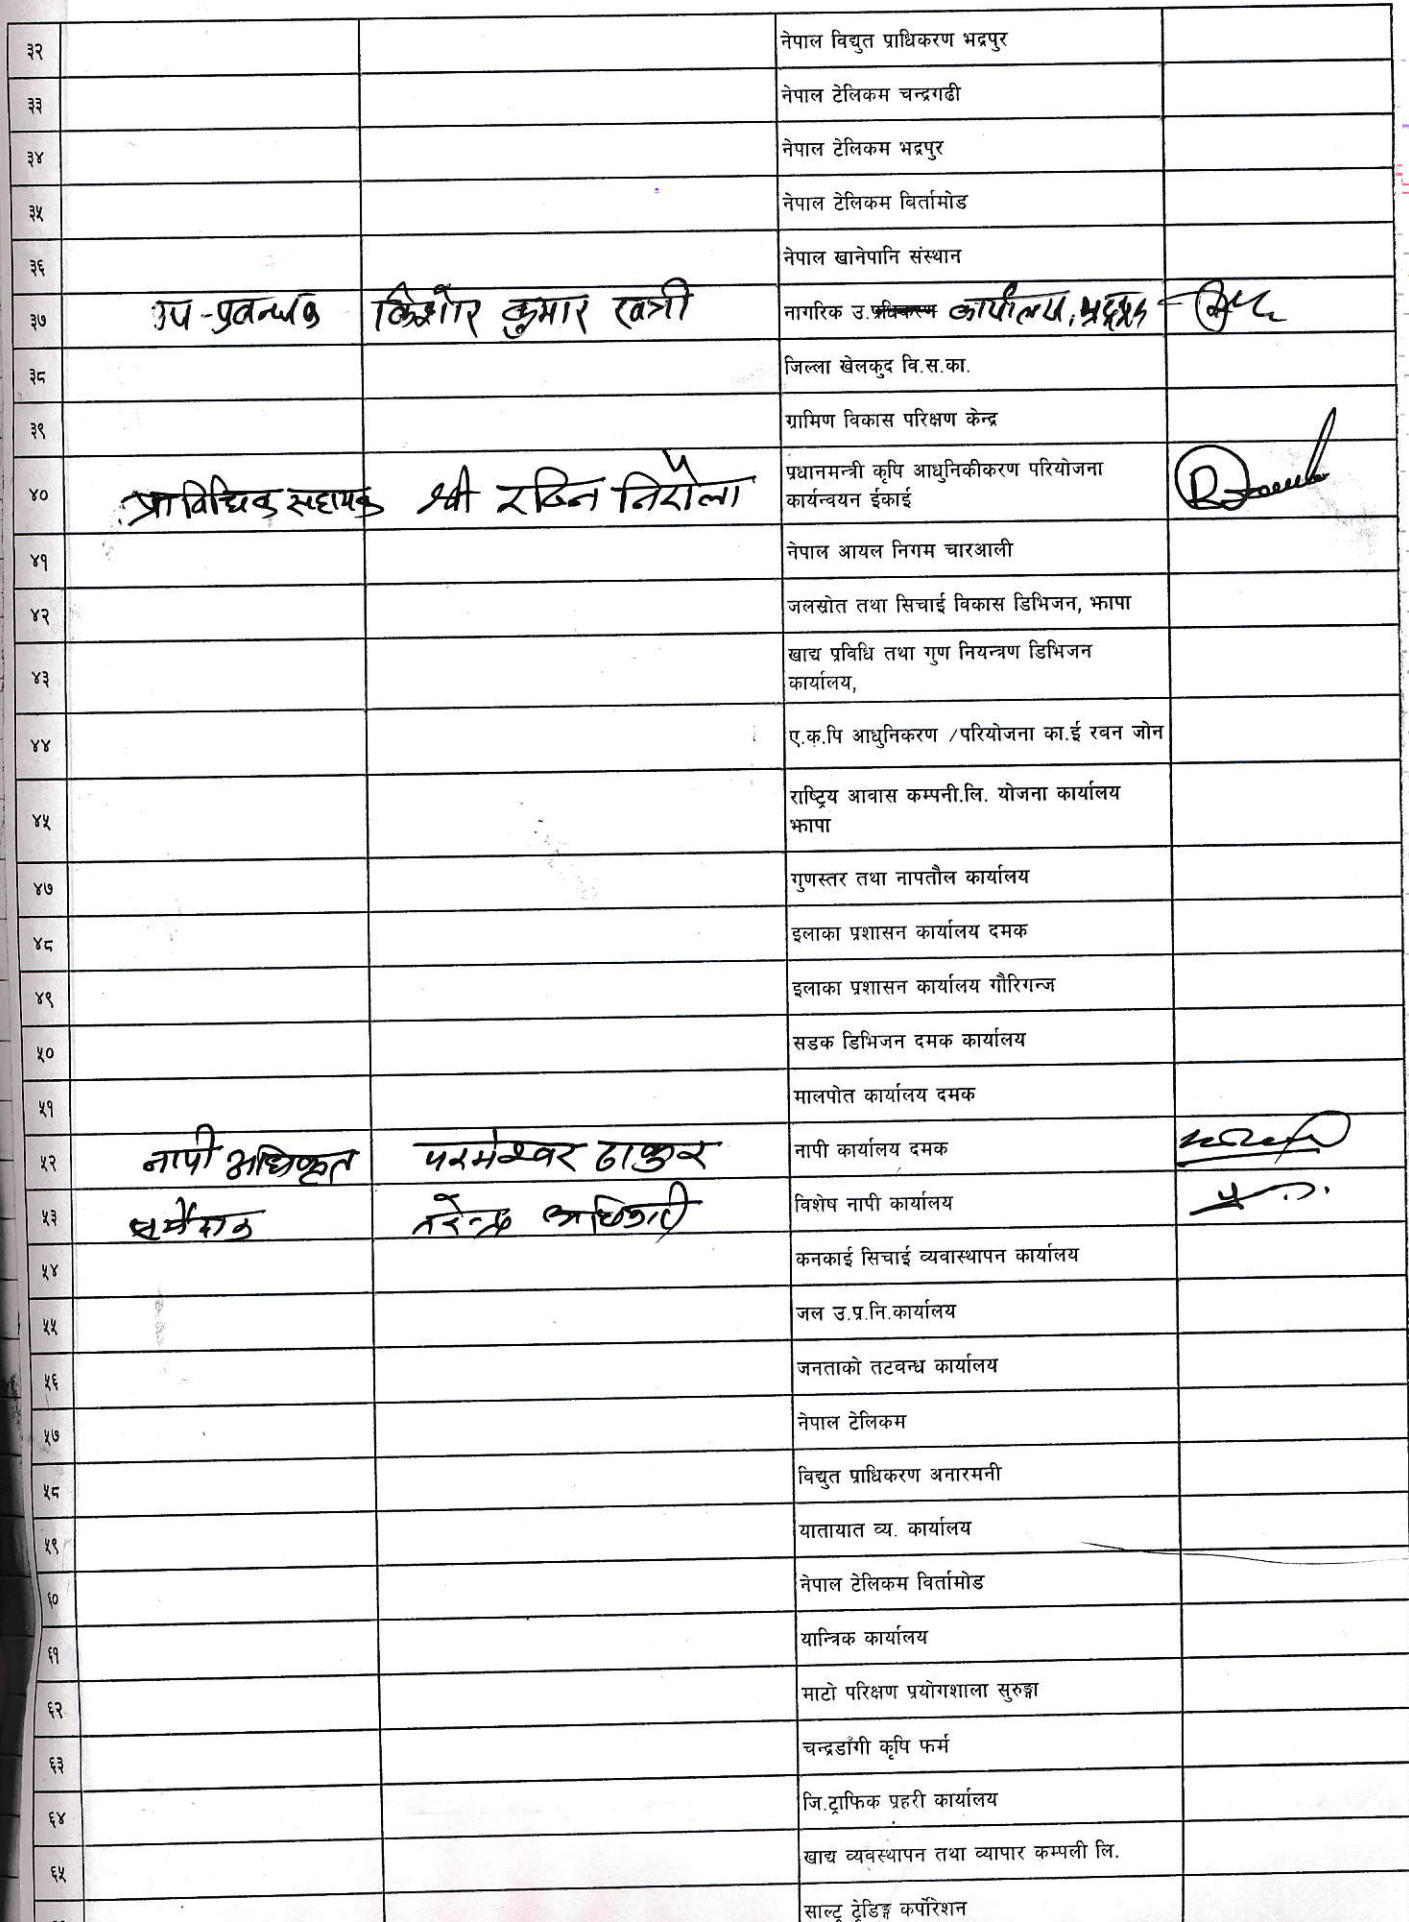 ३२ नेपाल विद्युत प्राधिकरण भद्रपुर
३३ नेपाल टेलिकम चन्द्रगढी
३४ नेपाल टेलिकम भद्रपुर
३५ नेपाल टेलिकम बिर्तामोड
३६ नेपाल खानेपानि संस्थान
३७ उप-प्रबन्धक किशोर कुमार खत्री नागरिक उ. प्रधिकरण कार्यालय, भद्रपुर
३८ जिल्ला खेलकुद वि.स.का.
३९ ग्रामिण विकास परिक्षण केन्द्र
४० प्राविधिक सहायक श्री रविन निरौला प्रधानमन्त्री कृषि आधुनिकीकरण परियोजना
कार्यन्वयन ईकाई
४१ नेपाल आयल निगम चारआली
४२ जलस्रोत तथा सिचाई विकास डिभिजन, झापा
४३ खाद्य प्रविधि तथा गुण नियन्त्रण डिभिजन
कार्यालय,
४४ ए.क.पि आधुनिकरण /परियोजना का.ई रबन जोन
४५ राष्ट्रिय आवास कम्पनी.लि. योजना कार्यालय
झापा
४७ गुणस्तर तथा नापतौल कार्यालय
४८ इलाका प्रशासन कार्यालय दमक
४९ इलाका प्रशासन कार्यालय गौरिगन्ज
५० सडक डिभिजन दमक कार्यालय
५१ मालपोत कार्यालय दमक
५२ नापी अधिकृत परमेश्वर ठाकुर नापी कार्यालय दमक
५३ सर्भेक्षक नरेन्द्र अधिकारी विशेष नापी कार्यालय
५४ कनकाई सिचाई व्यवास्थापन कार्यालय
५५ जल उ.प्र.नि.कार्यालय
५६ जनताको तटवन्ध कार्यालय
५७ नेपाल टेलिकम
५८ विद्युत प्राधिकरण अनारमनी
५९ यातायात व्य. कार्यालय
६० नेपाल टेलिकम विर्तामोड
६१ यान्त्रिक कार्यालय
६२ माटो परिक्षण प्रयोगशाला सुरुङ्गा
६३ चन्द्रडाँगी कृषि फर्म
६४ जि.ट्राफिक प्रहरी कार्यालय
६५ खाद्य व्यवस्थापन तथा व्यापार कम्पली लि.
साल्ट् ट्रेडिङ्ग कर्पोरेशन